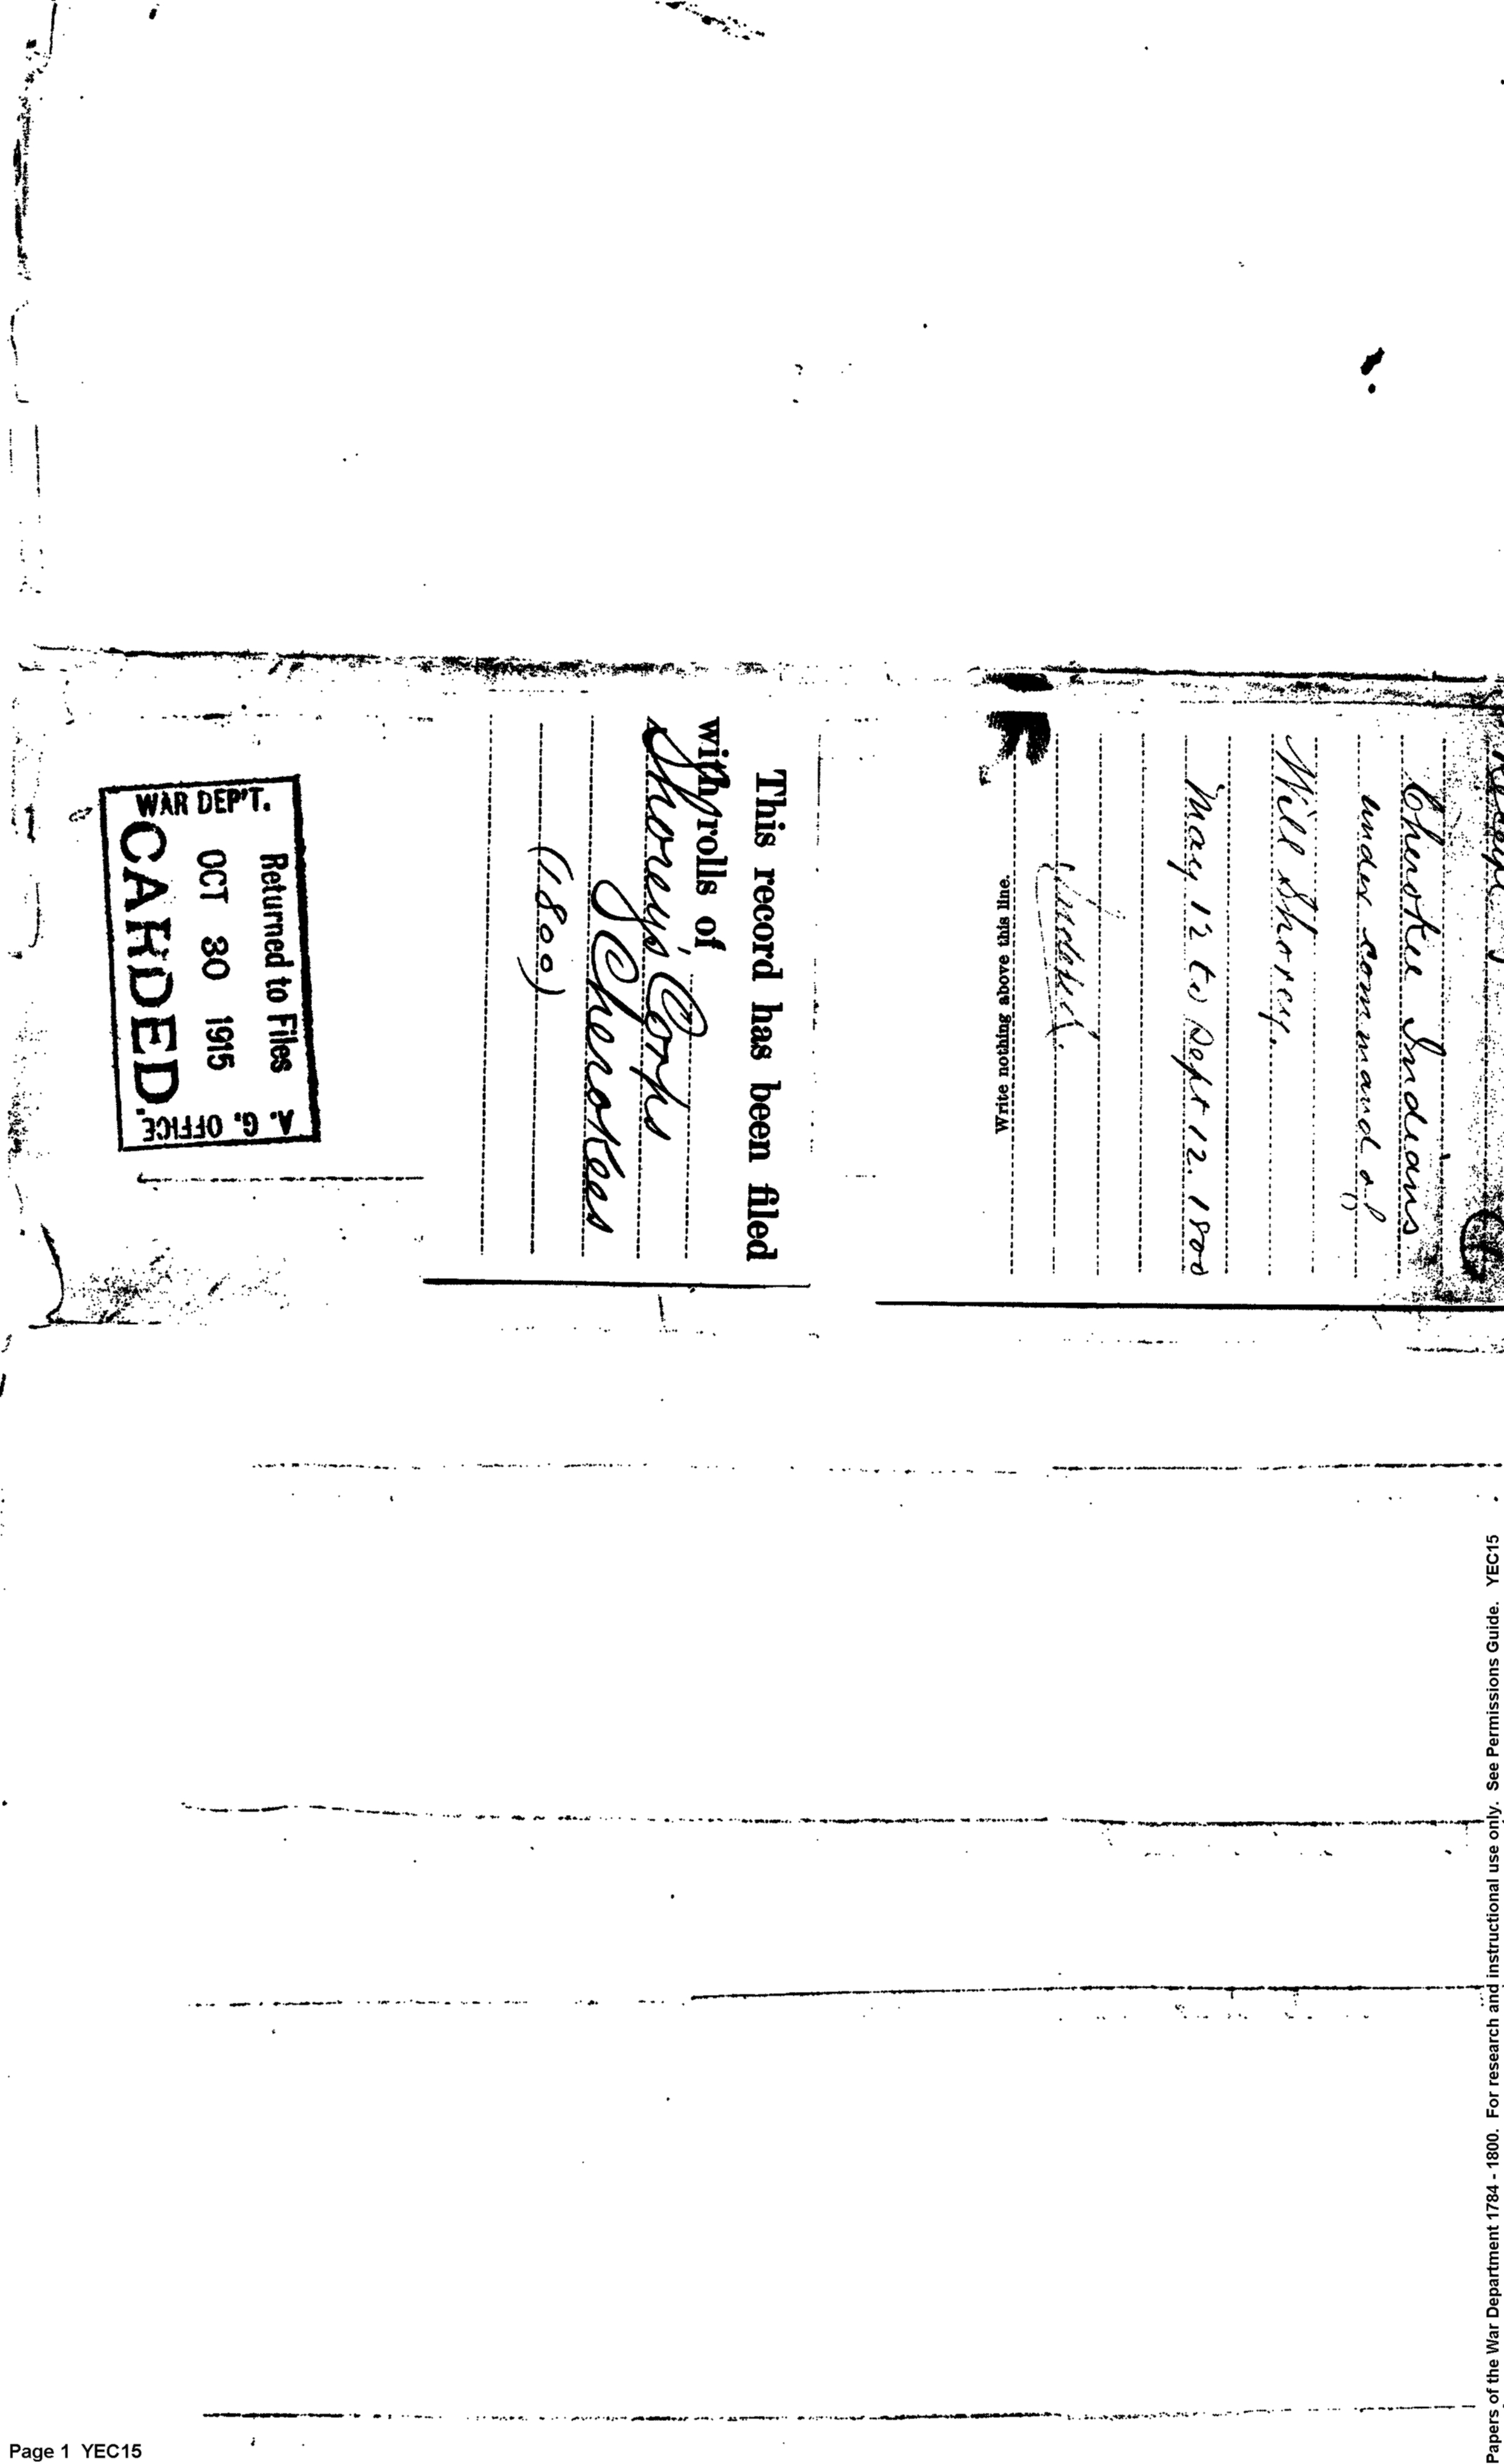 Cherokee Indians
under command of
Will Shorey.
May 12 to Sept 12. 1800
Write nothing above this line.
This record has been filed
with rolls of
Shorey's Corps
Cherokees
(1800)
Returned to Files
WAR DEP'T.
OCT 30 1915
A. G. OFFICE.
CARDED.
Papers of the War Department 1784 - 1800. For research and instructional use only. See Permissions Guide. YEC15
Page 1 YEC15